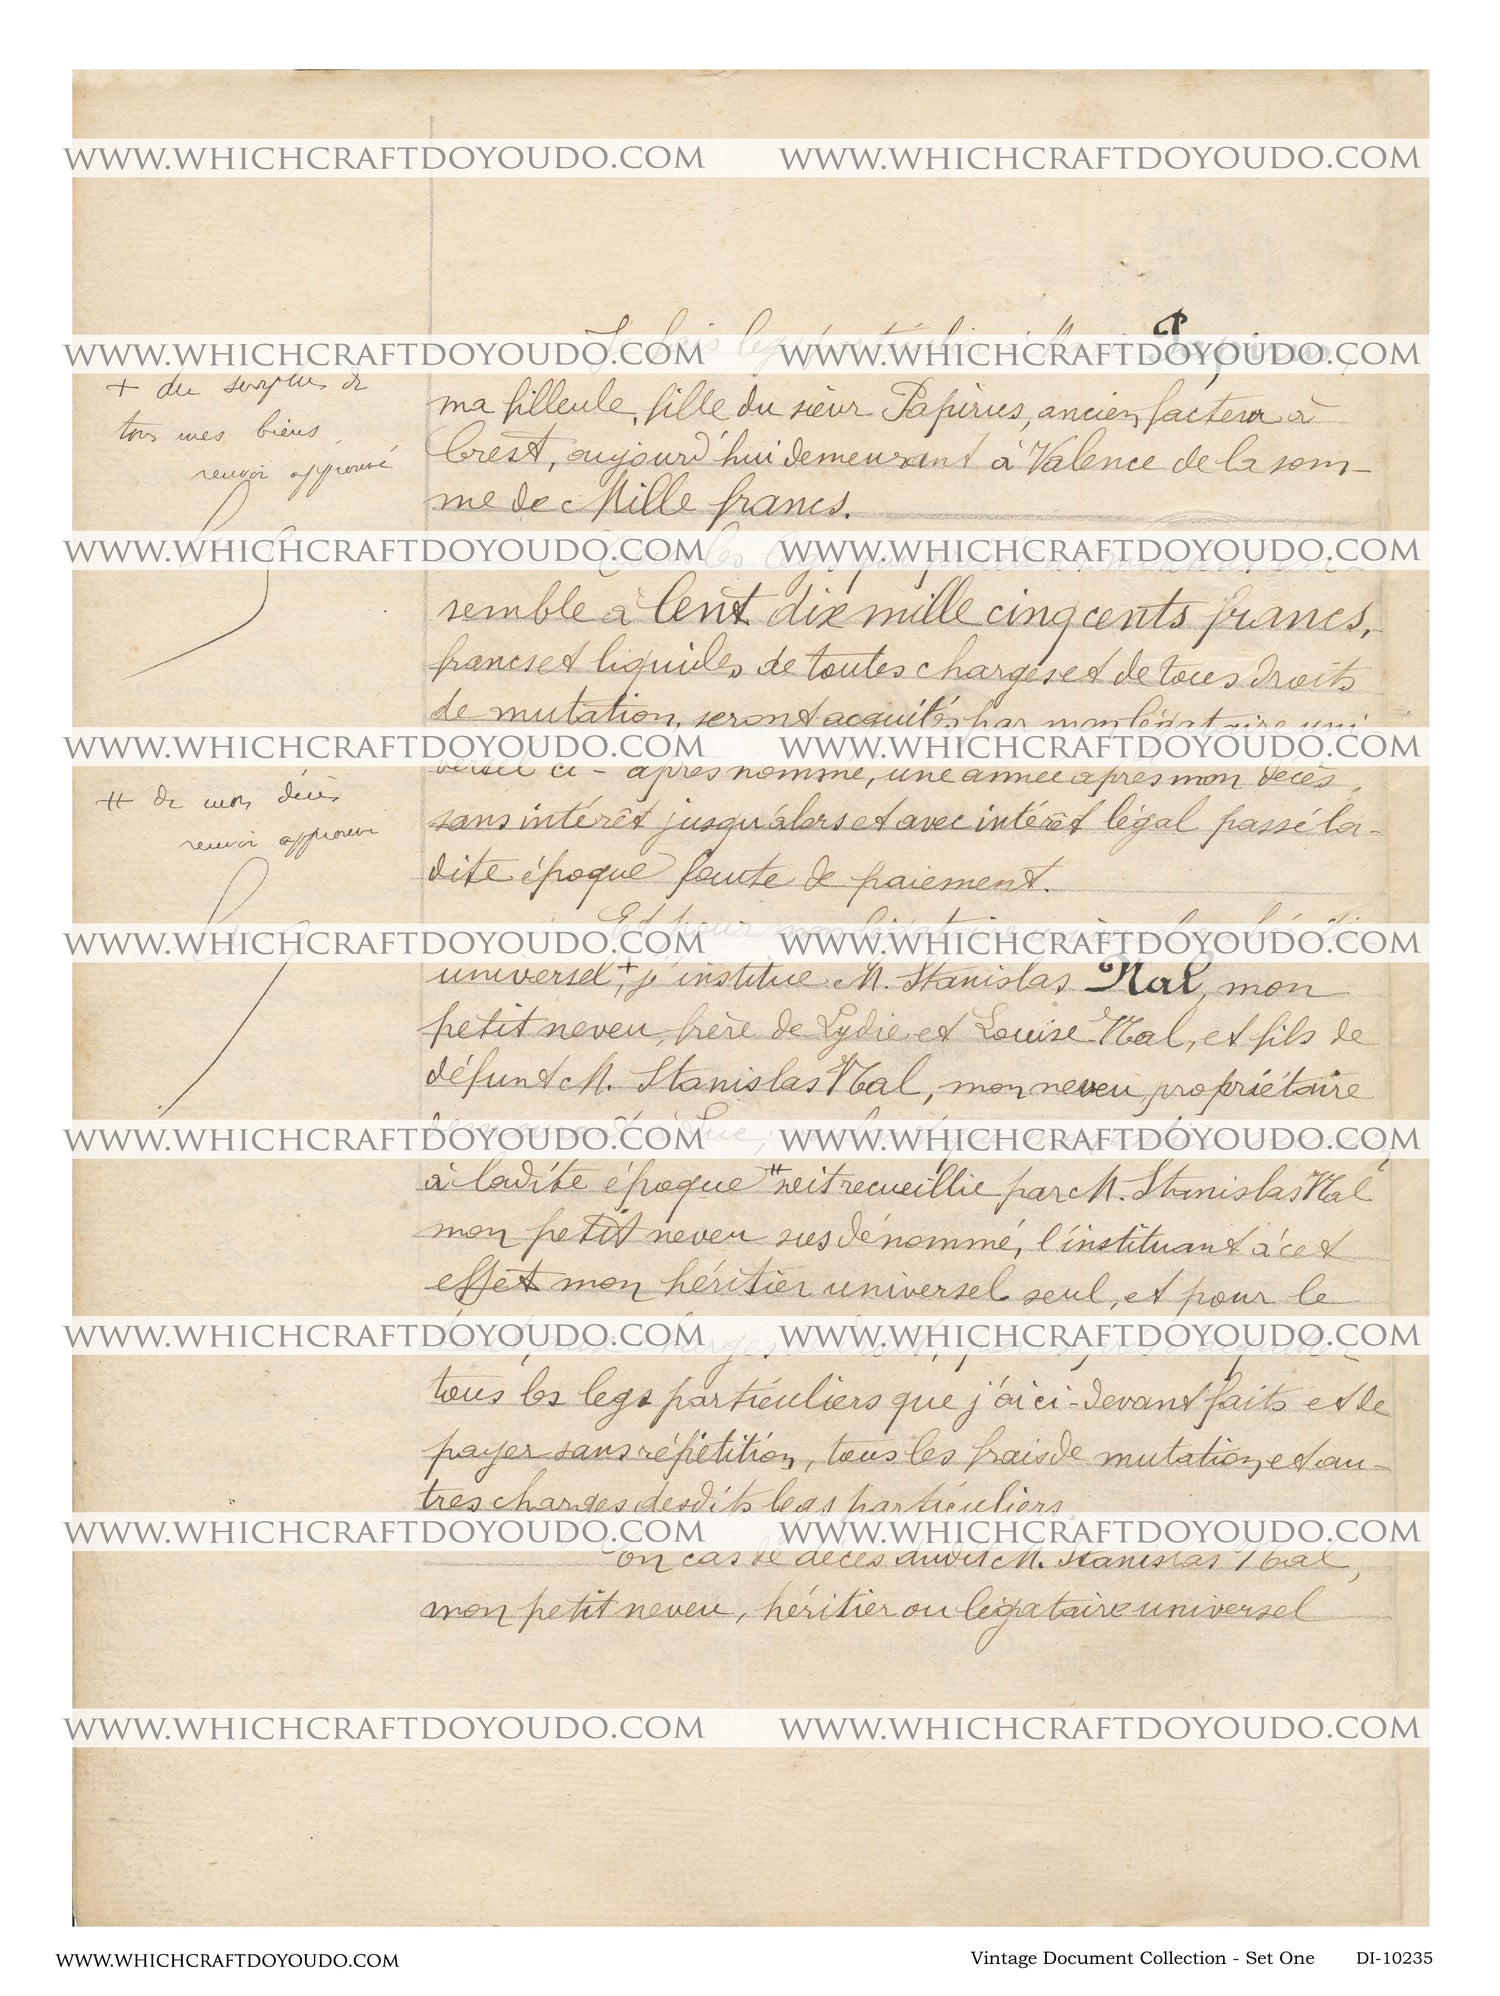 WWW.WHICHCRAFTDOYOUDO.COM WWW.WHICHCRAFTDOYOUDO.COM
Je fais legs particulier à Papirus,
WWW.WHICHCRAFTDOYOUDO.COM WWW.WHICHCRAFTDOYOUDO.COM
+ du surplus de
tous mes biens
renvoi approuvé
ma filleule, fille du sieur Papirus, ancien facteur à
Crest, aujourd'hui demeurant à Valence de la som-
me de Mille francs.
WWW.WHICHCRAFTDOYOUDO.COM WWW.WHICHCRAFTDOYOUDO.COM
Tous les legs qui
semble à Cent dix mille cinq cents francs,
francs et liquides de toutes charges et de tous droits
de mutation, seront acquités par mon légataire uni
WWW.WHICHCRAFTDOYOUDO.COM WWW.WHICHCRAFTDOYOUDO.COM
versel ci-après nommé, une année après mon décès,
# de mon décès
renvoi approuvé
sans intérêt jusqu'alors et avec intérêt légal passé la-
dite époque faute de paiement.
Et pour mon légataire
WWW.WHICHCRAFTDOYOUDO.COM WWW.WHICHCRAFTDOYOUDO.COM
universel,+ j'institue M. Stanislas Nal, mon
petit neveu, frère de Lydie et Louise Nal, et fils de
défunt M. Stanislas Nal, mon neveu, propriétaire
WWW.WHICHCRAFTDOYOUDO.COM WWW.WHICHCRAFTDOYOUDO.COM
à Luc,
à ladite époque # soit recueillie par M. Stanislas Nal
mon petit neveu susdénommé, l'instituant à cet
effet mon héritier universel seul, et pour le
WWW.WHICHCRAFTDOYOUDO.COM WWW.WHICHCRAFTDOYOUDO.COM
tous les legs particuliers que j'ai ci-devant faits et de
payer sans répétition, tous les frais de mutation et au-
tres charges desdits legs particuliers.
WWW.WHICHCRAFTDOYOUDO.COM WWW.WHICHCRAFTDOYOUDO.COM
En cas de décès dudit M. Stanislas Nal,
mon petit neveu, héritier ou légataire universel
WWW.WHICHCRAFTDOYOUDO.COM WWW.WHICHCRAFTDOYOUDO.COM
WWW.WHICHCRAFTDOYOUDO.COM
Vintage Document Collection - Set One DI-10235